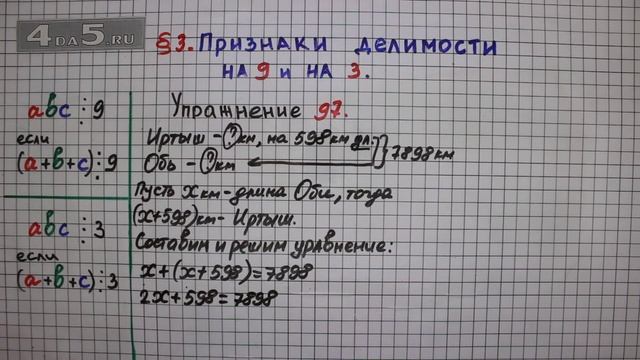 4DA5.RU
§3. Признаки делимости
на 9 и на 3.
abc ⋮ 9
если
(a+b+c) ⋮ 9
abc ⋮ 3
если
(a+b+c) ⋮ 3
Упражнение 97.
Иртыш - ? км, на 598 км дл.
Обь - ? км
7898 км
Пусть x км - длина Оби, тогда
(x+598) км - Иртыш.
Составим и решим уравнение:
x+(x+598)=7898
2x+598=7898